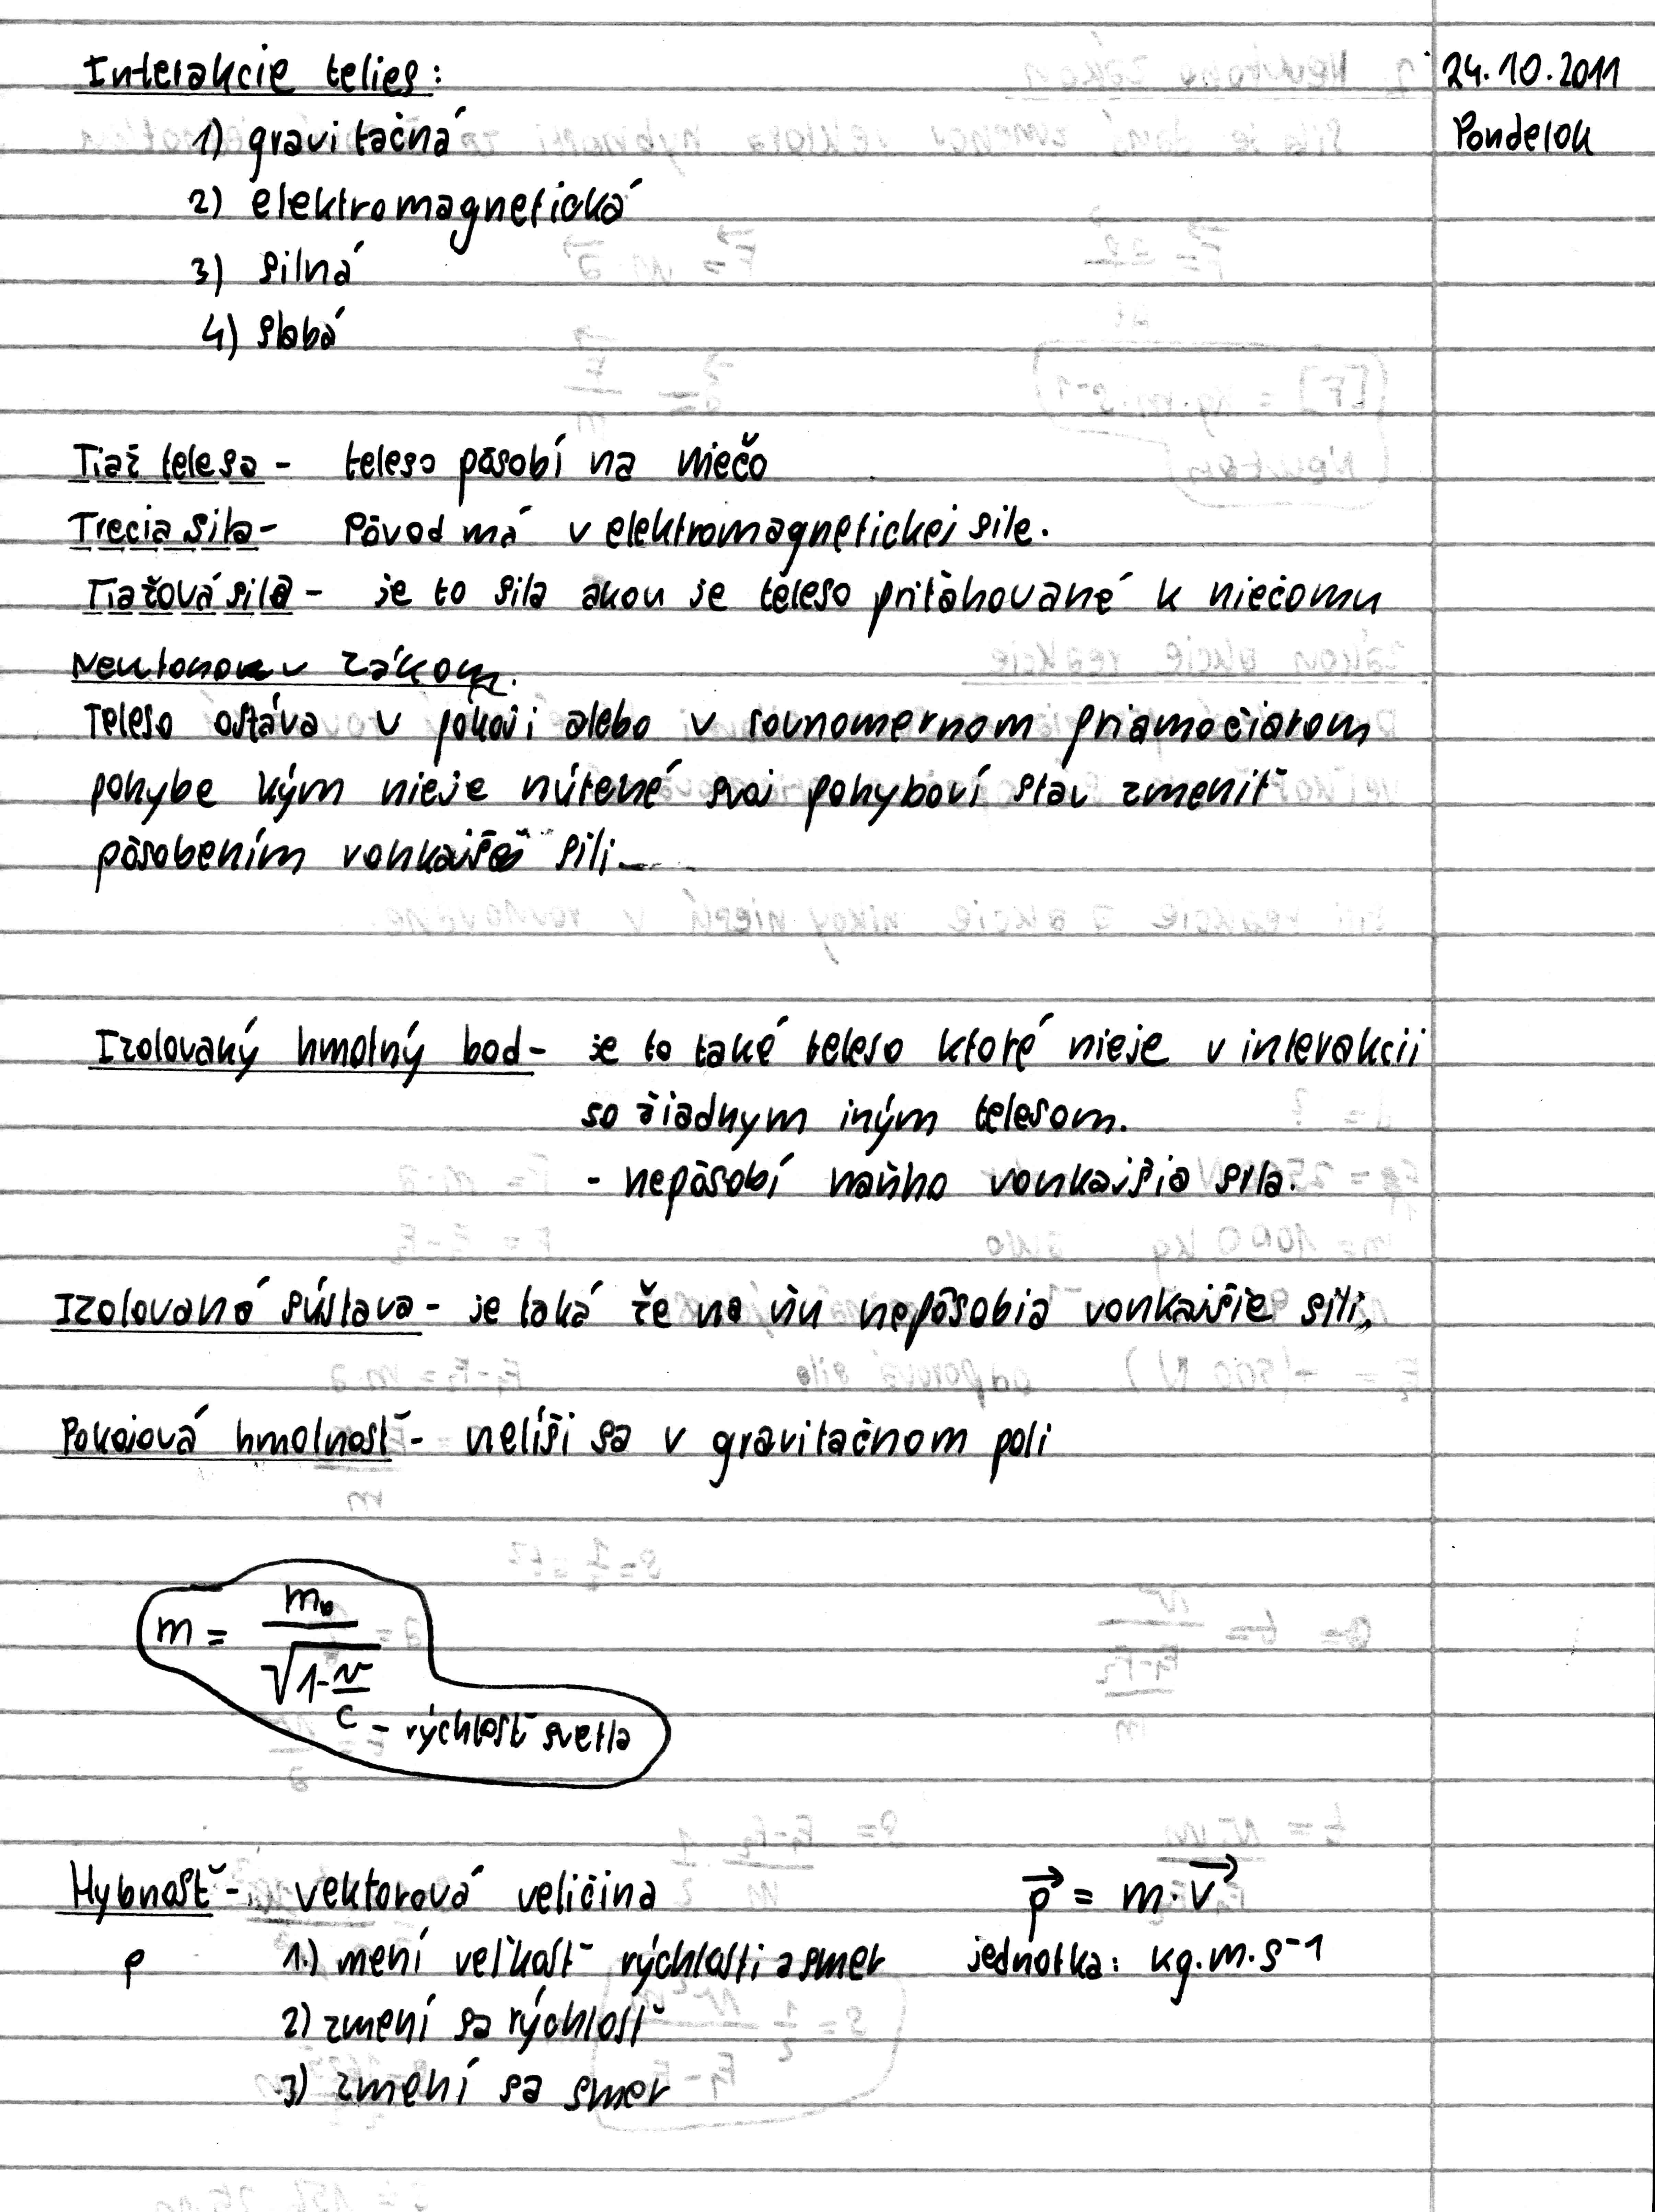 Interakcie telies:
24.10.2011
Pondelok
1) gravitačná
2) elektromagnetická
3) silná
4) slabá
Tiaž telesa - teleso pôsobí na niečo
Trecia sila - Pôvod má v elektromagnetickej sile.
Tiažová sila - je to sila akou je teleso priťahované k niečomu
Neutonov zákon.
Teleso ostáva v pokoji alebo v rovnomernom priamočiarom
pohybe kým nieje nútené svoj pohyboví stav zmeniť
pôsobením vonkajšej sili.
Izolovaný hmotný bod - je to také teleso ktoré nieje v interakcii
so žiadnym iným telesom.
- nepôsobí naňho vonkajšia sila.
Izolovaná sústava - je taká že na ňu nepôsobia vonkajšie sili.
Pokojová hmotnosť - nelíši sa v gravitačnom poli
m = m₀ / √(1-v/c)
c - rýchlosť svetla
Hybnosť - vektorová veličina p⃗ = m·v⃗
p 1.) mení veľkosť rýchlosti a smer jednotka: kg.m.s⁻¹
2) zmení sa rýchlosť
3) zmení sa smer